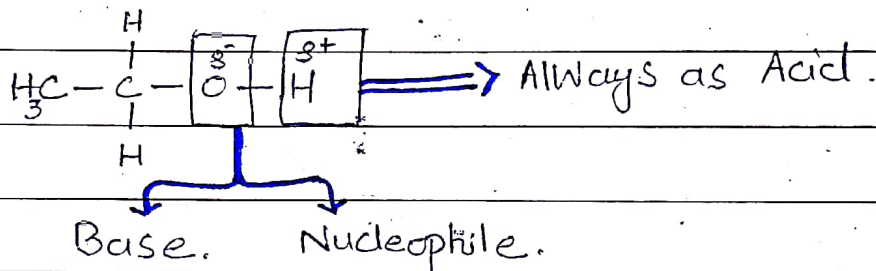 H
δ- δ+
H3C - C - O - H ⟹ Always as Acid.
H
Base. Nucleophile.